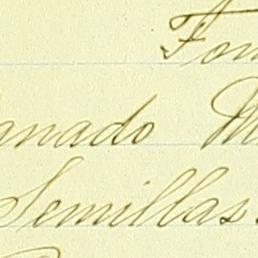 Fom
anado M
Semillas